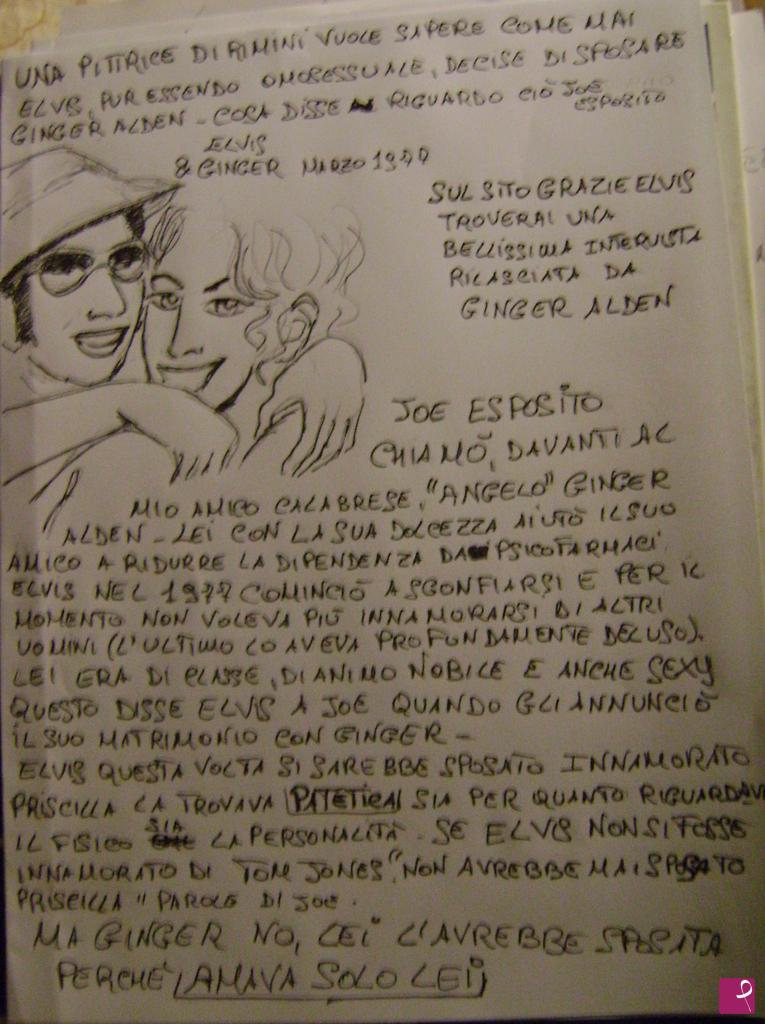 UNA PITTRICE DI RIMINI VUOLE SAPERE COME MAI
ELVIS, PUR ESSENDO OMOSESSUALE, DECISE DI SPOSARE
GINGER ALDEN - COSA DISSE RIGUARDO CIÒ JOE
ESPOSITO
ELVIS
& GINGER MARZO 1977
SUL SITO GRAZIE ELVIS
TROVERAI UNA
BELLISSIMA INTERVISTA
RILASCIATA DA
GINGER ALDEN
JOE ESPOSITO
CHIAMÒ, DAVANTI AL
MIO AMICO CALABRESE, "ANGELO" GINGER
ALDEN - LEI CON LA SUA DOLCEZZA AIUTÒ IL SUO
AMICO A RIDURRE LA DIPENDENZA DA PSICOFARMACI
ELVIS NEL 1977 COMINCIÒ A SGONFIARSI E PER IL
MOMENTO NON VOLEVA PIÙ INNAMORARSI DI ALTRI
UOMINI (L'ULTIMO LO AVEVA PROFUNDAMENTE DELUSO).
LEI ERA DI CLASSE, DI ANIMO NOBILE E ANCHE SEXY
QUESTO DISSE ELVIS A JOE QUANDO GLI ANNUNCIÒ
IL SUO MATRIMONIO CON GINGER -
ELVIS QUESTA VOLTA SI SAREBBE SPOSATO INNAMORATO
PRISCILLA LA TROVAVA PATETICA SIA PER QUANTO RIGUARDAVA
IL FISICO SIA LA PERSONALITÀ. SE ELVIS NON SI FOSSE
INNAMORATO DI TOM JONES, "NON AVREBBE MAI SPOSATO
PRISCILLA" PAROLE DI JOE.
MA GINGER NO, LEI L'AVREBBE SPOSATA
PERCHÉ AMAVA SOLO LEI